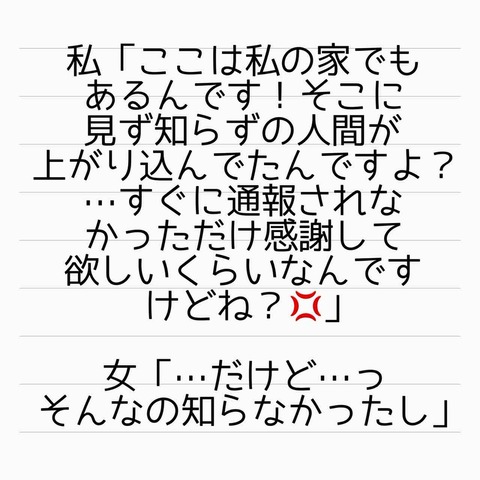 私「ここは私の家でも
あるんです！そこに
見ず知らずの人間が
上がり込んでたんですよ？
…すぐに通報されな
かっただけ感謝して
欲しいくらいなんです
けどね？💢」
女「…だけど…っ
そんなの知らなかったし」